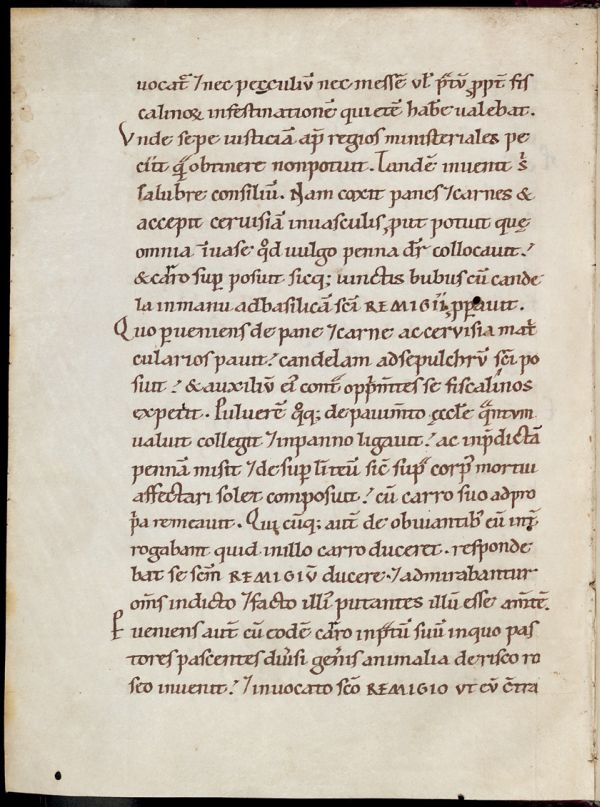 uocat̄ ⁊ nec pecculiū nec messē ul̄ p̄tū ꝓpt̄ fis
calinoꝝ infestinationē quietē hab̄e ualebat.
Vnde sepe iusticiā ap̄ regios ministeriales pe
ciit quā obtinere non potuit. Tandē inuenit s̄
salubre consiliū. Nam coxit panes ⁊ carnes &
accepit ceruisiā in uasculis, put potuit quę
omnia ī uase qd̄ uulgo penna dr̄ collocauit.
& car̄o sup̄ posuit sicq; iunctis bubus cū cande
la in manu ad basilicā sc̄i REMIGII, pperauit.
Quo pueniens de pane ⁊ carne ac ceruisia mat̄
cularios pauit. candelam ad sepulchrū sc̄i po
suit. & auxiliū ei᷒ cont̄ opp̄m̄tes se fiscalinos
expetiit. Puluerē qq; de pauim̄to ęccl̄e quantum
ualuit collegit ⁊ in panno ligauit. ac in p̄dictā
pennā misit ⁊ de sup̄ lint̄eū sic̄ sup̄ corp᷒ mortui
affectari solet composuit. cū carro suo ad pro
p̄a remeauit. Qui cūq; aut̄ de obuiantib᷒ eū int̄
rogabant quid in illo carro duceret. responde
bat se sc̄m REMIGIŪ ducere. ⁊ admirabantur
om̄s in dicto ⁊ facto illi᷒ putantes illū esse am̄tē.
Pueniens aut̄ cū eodē car̄o in p̄tū suū in quo pas
tores pascentes diu̇si gen̄is animalia de risco ro
seo inuenit. ⁊ inuocato sc̄o REMIGIO ut eū c̄tra